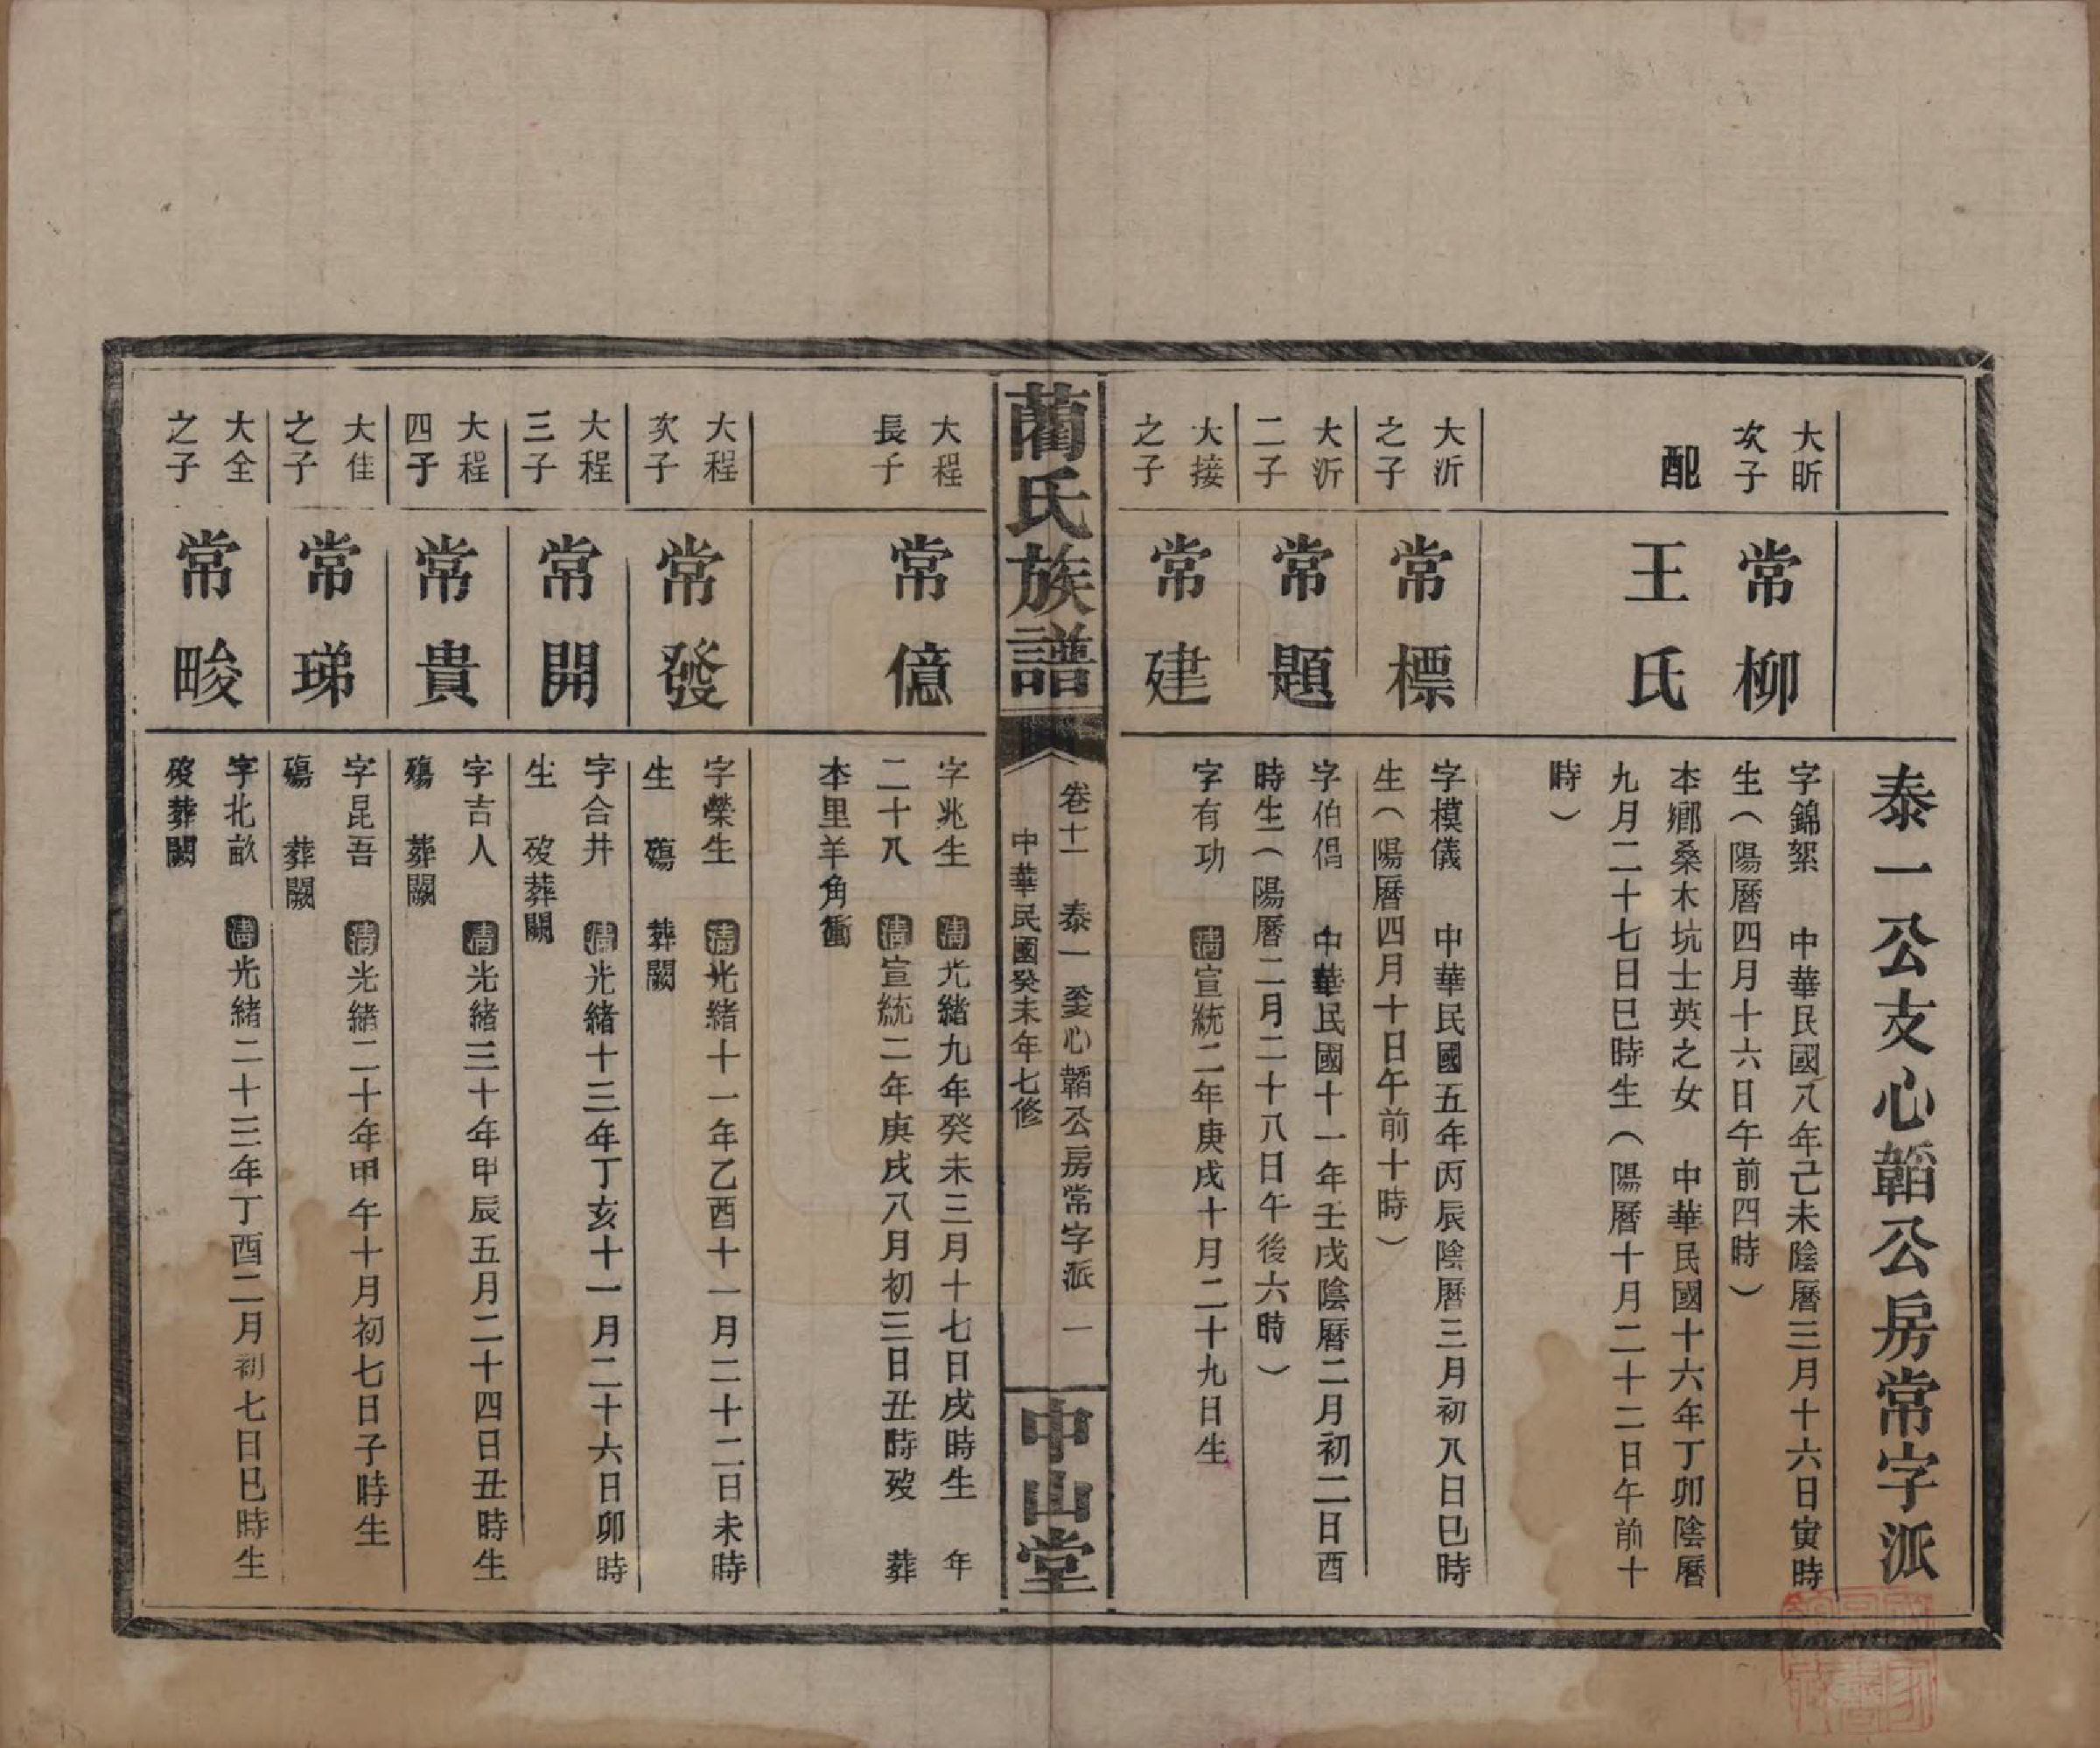 泰一公支心韜公房常字派
大昕
次子
常柳
字錦絮　中華民國八年己未陰曆三月十六日寅時
生（陽曆四月十六日午前四時）
配
王氏
本鄉桑木坑士英之女　中華民國十六年丁卯陰曆
九月二十七日巳時生（陽曆十月二十二日午前十
時）
大沂
之子
常標
字模儀　中華民國五年丙辰陰曆三月初八日巳時
生（陽曆四月十日午前十時）
大沂
二子
常題
字伯倡　中華民國十一年壬戌陰曆二月初二日酉
時生（陽曆二月二十八日午後六時）
大接
之子
常建
字有功　清宣統二年庚戌十月二十九日生
藺氏族譜
卷十一　泰一　至心韜公房常字派　一
中華民國癸未年七修
中山堂
大程
長子
常億
字兆生　清光緒九年癸未三月十七日戌時生　年
二十八　清宣統二年庚戌八月初三日丑時歿　葬
本里羊角衝
大程
次子
常發
字榮生　清光緒十一年乙酉十一月二十二日未時
生　殤　葬闕
大程
三子
常開
字合井　清光緒十三年丁亥十一月二十六日卯時
生　歿葬闕
大程
四子
常貴
字吉人　清光緒三十年甲辰五月二十四日丑時生
殤　葬闕
大佳
之子
常珶
字昆吾　清光緒二十年甲午十月初七日子時生
殤　葬闕
大全
之子
常畯
字北畝　清光緒二十三年丁酉二月初七日巳時生
歿葬闕